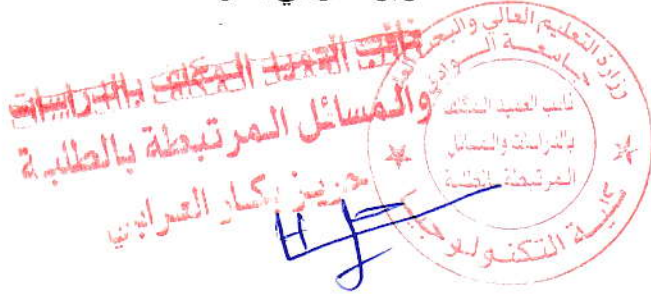 نائب العميد المكلف بالدراسات
والمسائل المرتبطة بالطلبة
وزارة التعليم العالي والبحث
جامعة الوادي
نائب العميد المكلف
بالدراسات والمسائل
المرتبطة بالطلبة
كلية التكنولوجيا